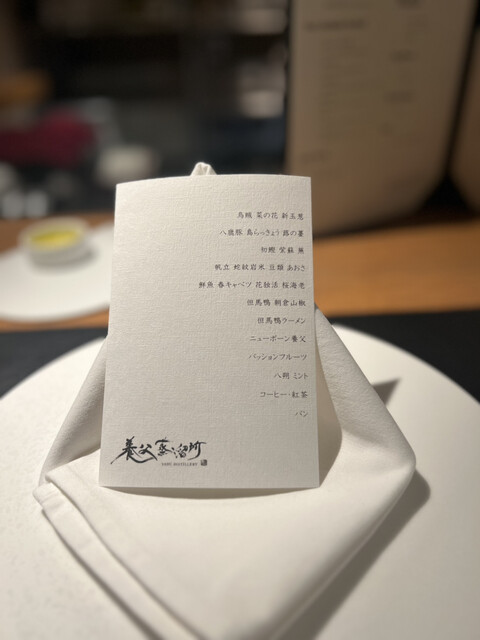 烏賊 菜の花 新玉葱
八鹿豚 島らっきょう 蕗の薹
初鰹 紫蘇 葱
帆立 蛇紋岩米 豆類 あおさ
鮮魚 春キャベツ 花独活 桜海老
但馬鴨 朝倉山椒
但馬鴨ラーメン
ニューボーン養父
パッションフルーツ
八朔 ミント
コーヒー・紅茶
パン
養父蒸溜所
YABU DISTILLERY